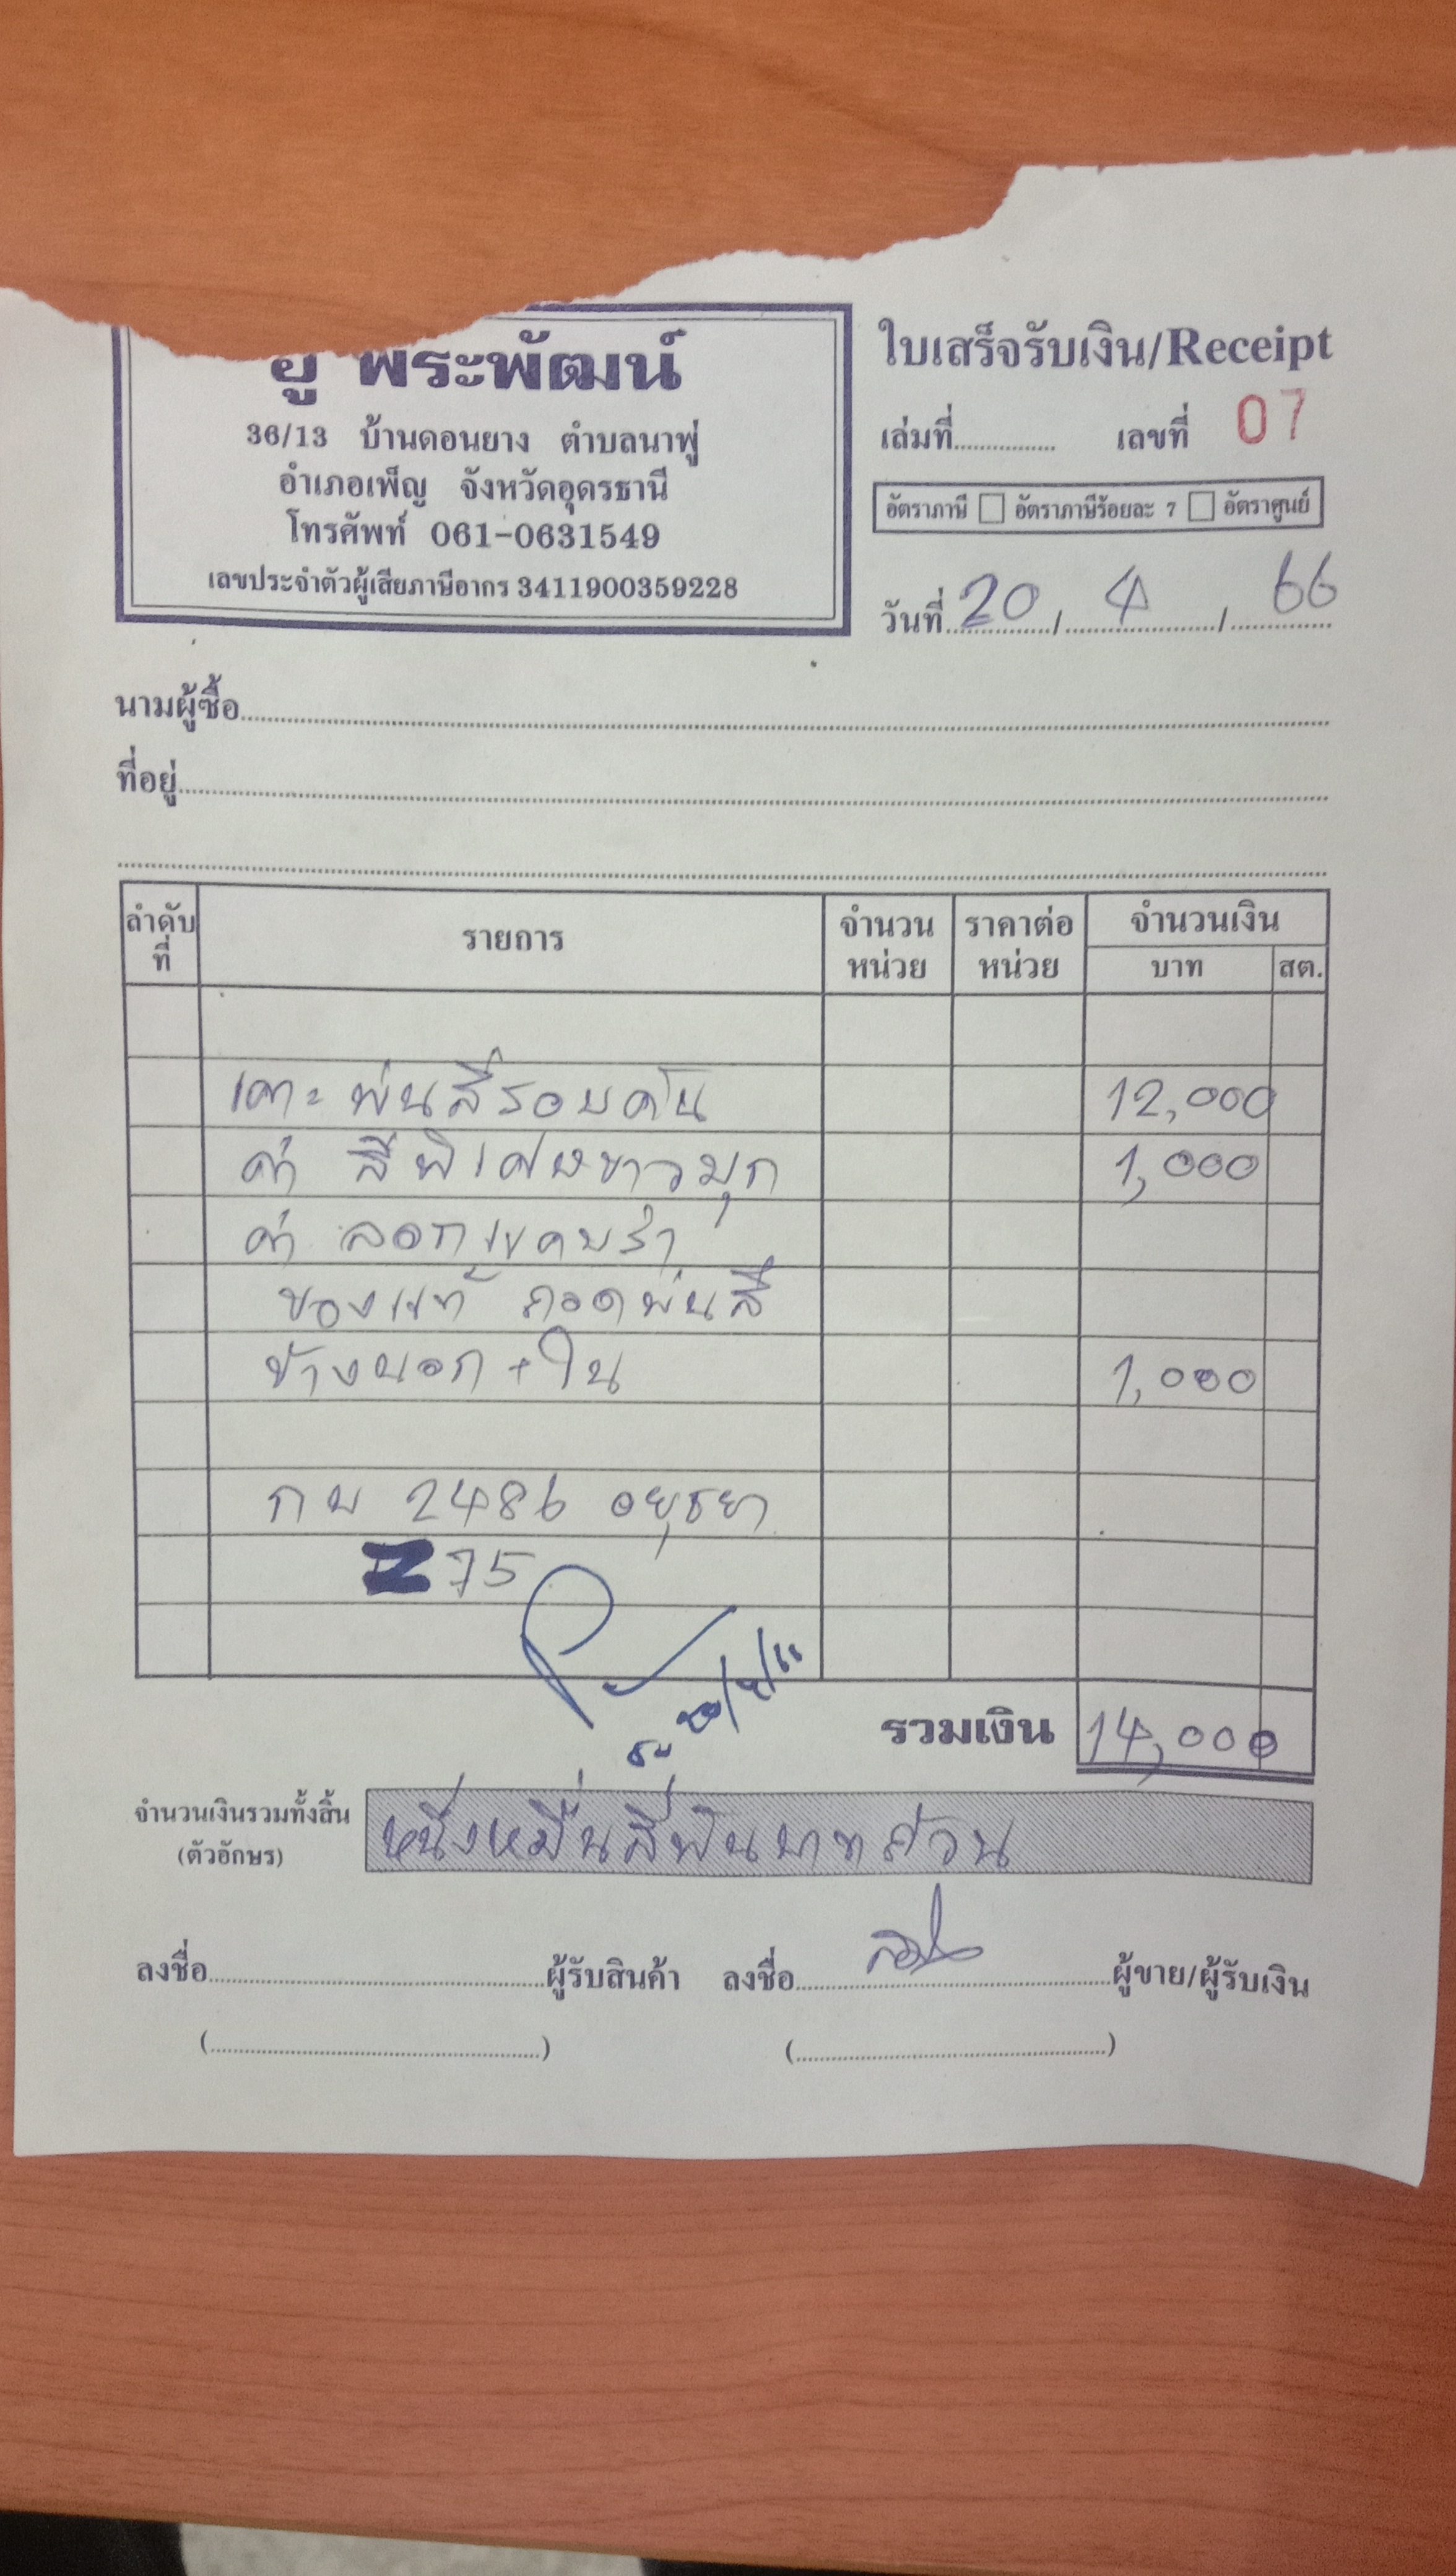 อู่ พีระพัฒน์
36/13 บ้านดอนยาง ตำบลนาพู่
อำเภอเพ็ญ จังหวัดอุดรธานี
โทรศัพท์ 061-0631549
เลขประจำตัวผู้เสียภาษีอากร 3411900359228
ใบเสร็จรับเงิน/Receipt
เล่มที่ เลขที่ 07
อัตราภาษี อัตราภาษีร้อยละ 7 อัตราศูนย์
วันที่ 20 / 4 / 66
นามผู้ซื้อ
ที่อยู่
ลำดับที่ รายการ จำนวนหน่วย ราคาต่อหน่วย จำนวนเงิน
บาท สต.
เคาะ พ่นสีรอบคัน 12,000
ค่า สีพิเศษขาวมุก 1,000
ค่า ลอกแคบร่า
ของแท้ ถอดพ่นสี
ข้างนอก + ใน 1,000
กบ 2486 อยุธยา
Z 75
รวมเงิน 14,000
จำนวนเงินรวมทั้งสิ้น หนึ่งหมื่นสี่พันบาทถ้วน
(ตัวอักษร)
ลงชื่อ ผู้รับสินค้า ลงชื่อ ผู้ขาย/ผู้รับเงิน